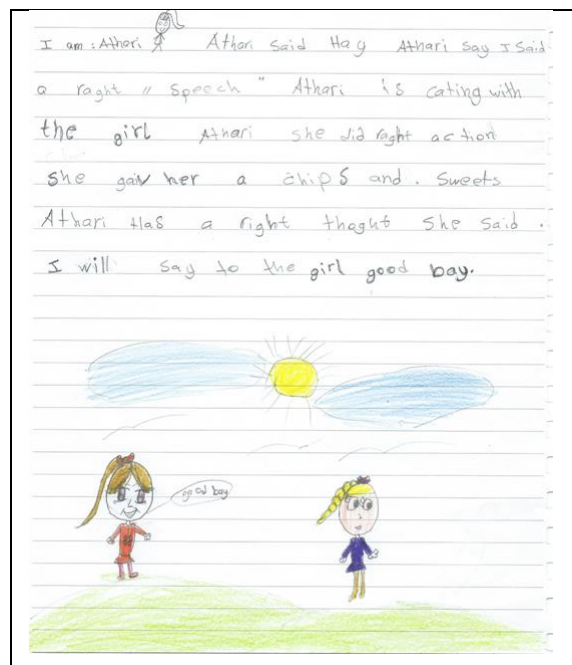 I am : Athari Athari said Hay Athari say I said
a raght " speech " Athari is cating with
the girl Athari she did raght action
she gaiv her a chips and . sweets
Athari Has a right thaght she said .
I will say to the girl good bay.
good bay